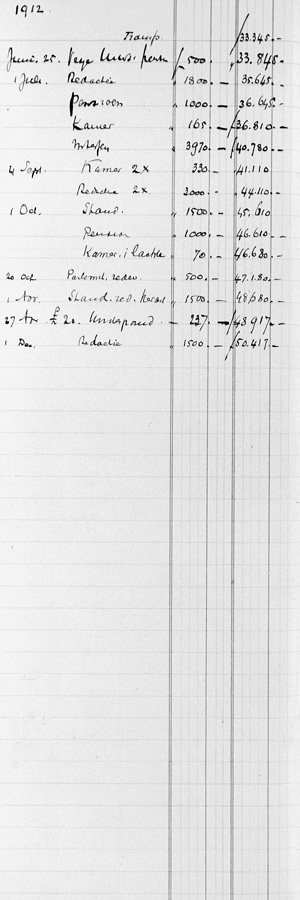 1912.
Transp 33.345.-
Juni. 25. ƒ 500.- 33.845-
1 Juli. Redactie " 1800.- 35.645.
Pensioen " 1000.- 36.645.-
Kamer " 165.- 36.810.-
" 3970.- 40.780.-
4 Sept. Kamer 2x 330.- 41.110
Redactie 2x 3000.- 44.110.-
1 Oct. Stand. " 1500.- 45.610
Pension " 1000.- 46.610.-
Kamer. " 70.- 46.680.-
20 Oct. Parlement. redev. " 500.- 47.180.-
1 Nov. Stand. red. " 1500.- 48.680.-
27 Nov. £ 20. - 237.- 48.917.-
1 Dec. Redactie " 1500.- 50.417.-